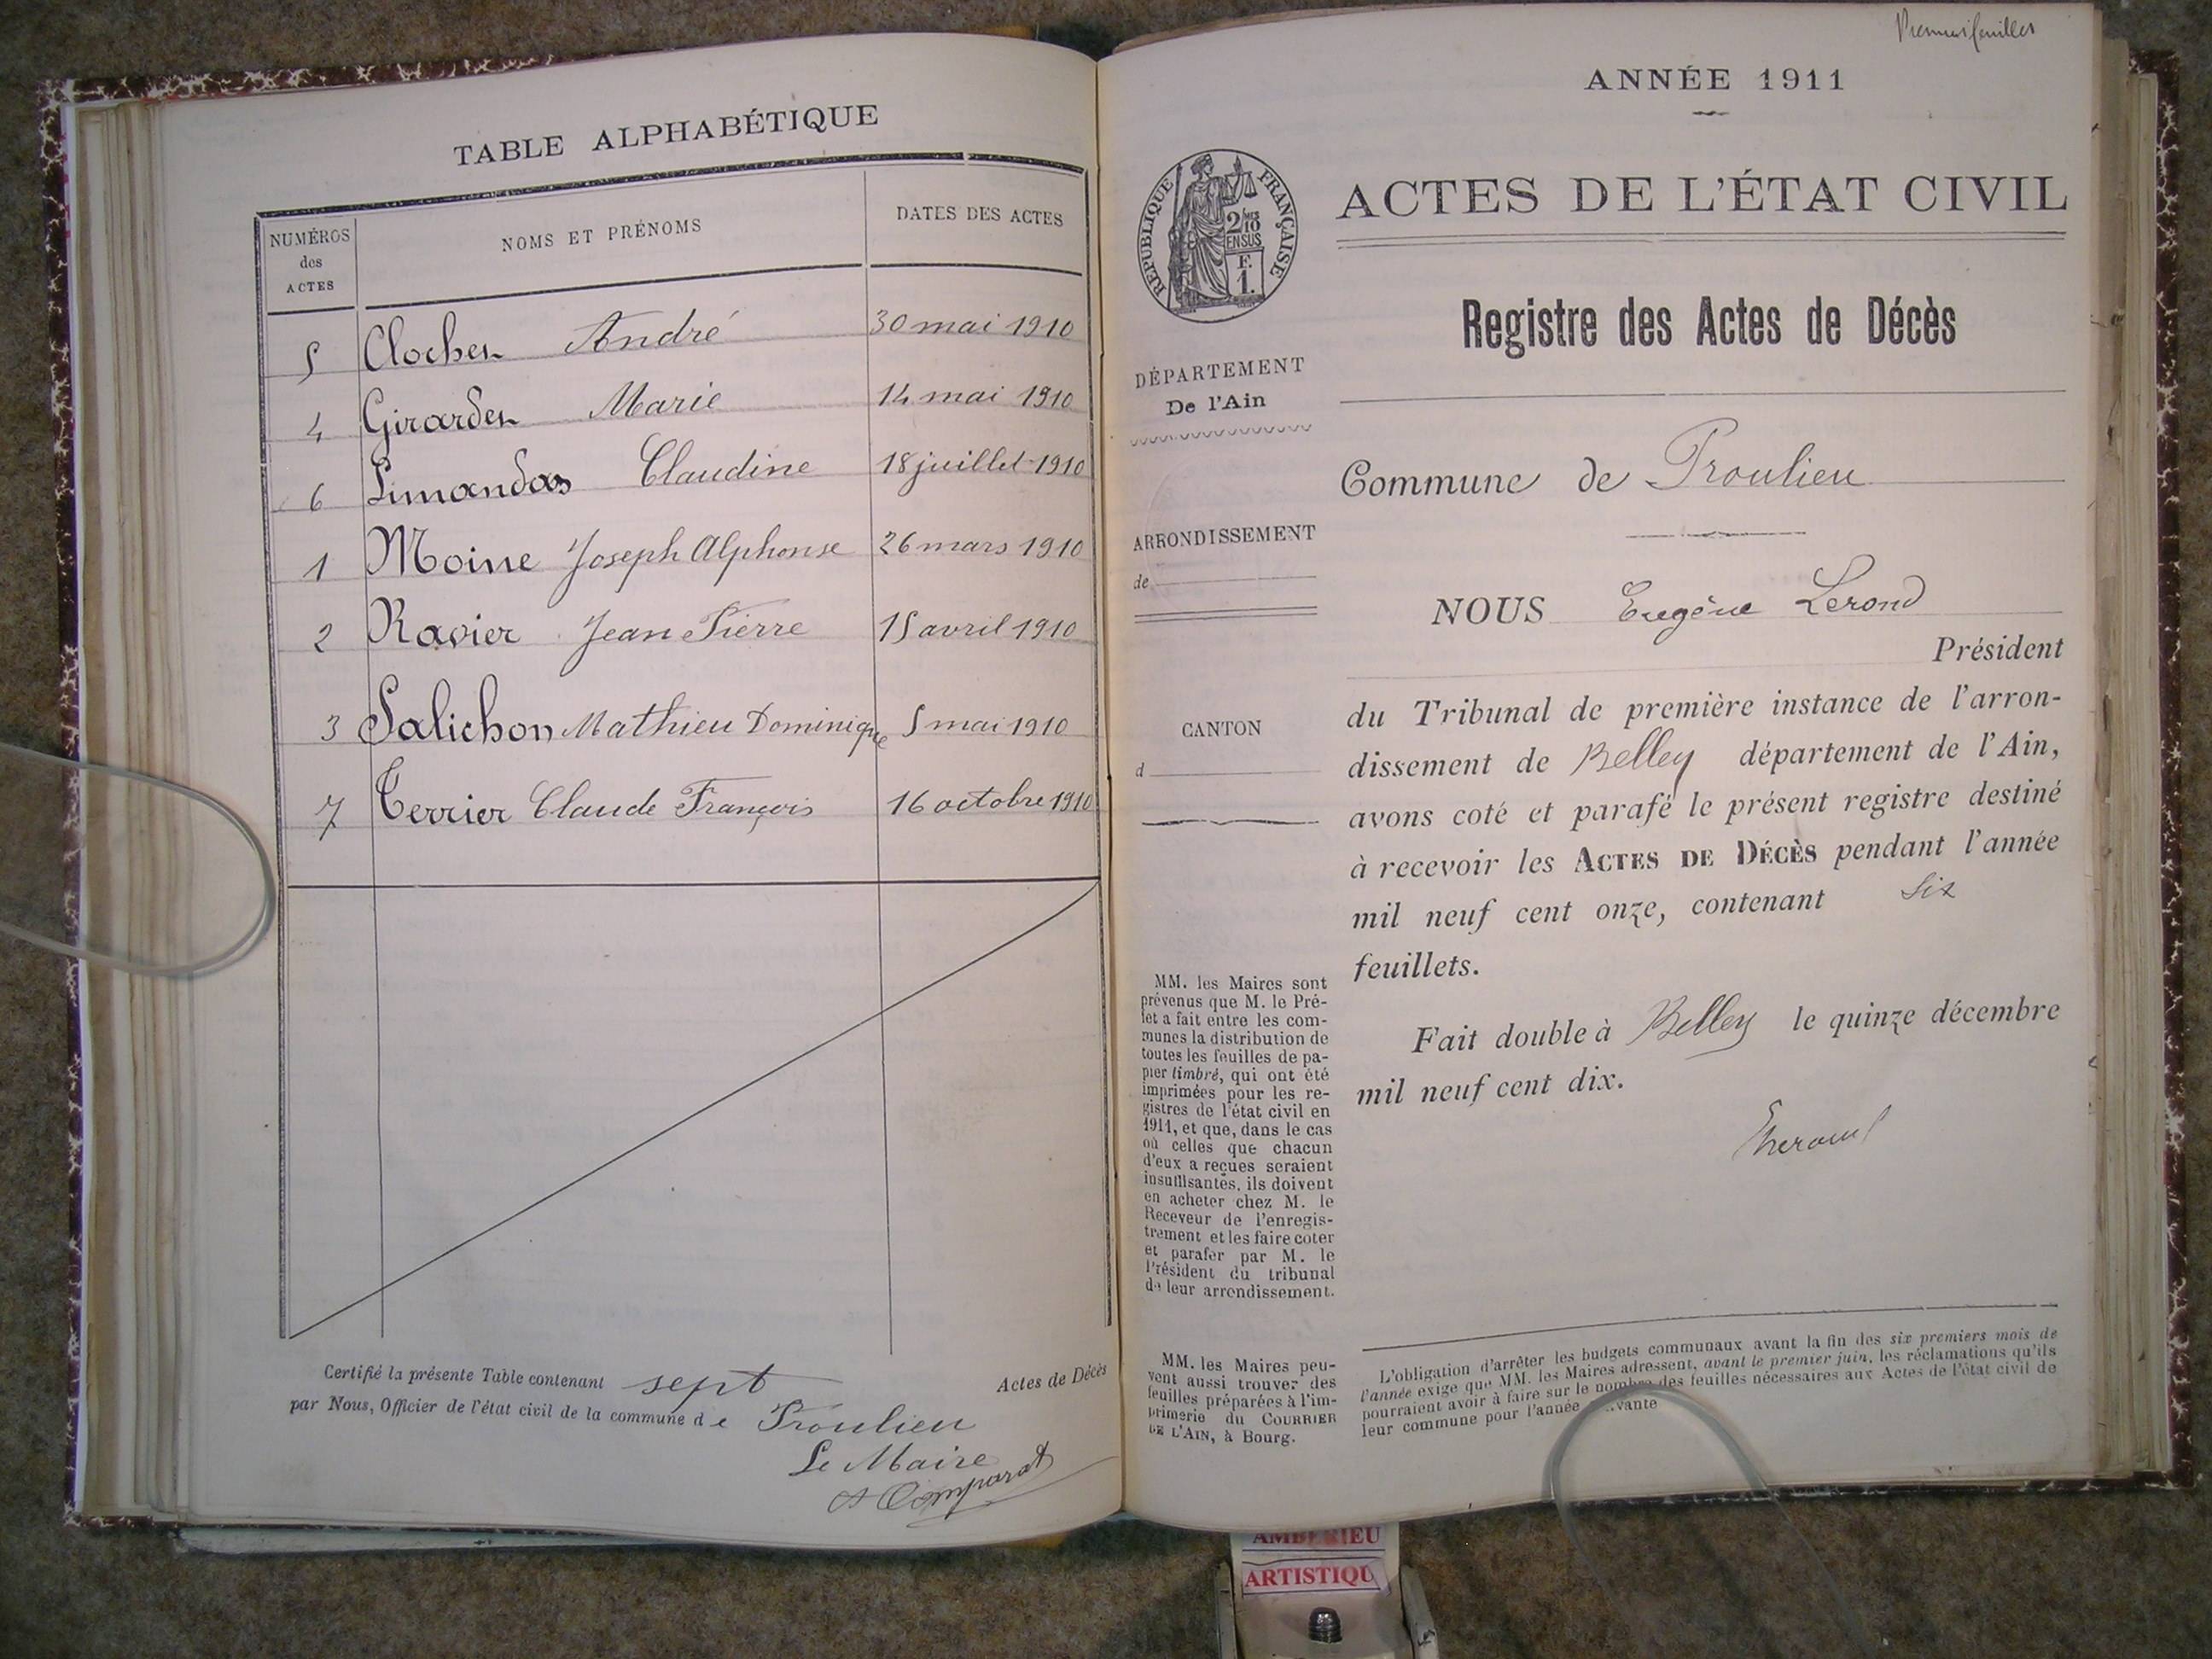 TABLE ALPHABÉTIQUE
NUMÉROS
des
ACTES
NOMS ET PRÉNOMS
DATES DES ACTES
5 Clocher André 30 mai 1910
4 Girarder Marie 14 mai 1910
6 Limandas Claudine 18 juillet 1910
1 Moine Joseph Alphonse 26 mars 1910
2 Ravier Jean Pierre 15 avril 1910
3 Salichon Mathieu Dominique 5 mai 1910
7 Terrier Claude François 16 octobre 1910
Certifié la présente Table contenant sept Actes de Décès
par Nous, Officier de l'état civil de la commune de Proulieu
Le Maire
Comparat
Premier feuillet
ANNÉE 1911
RÉPUBLIQUE FRANÇAISE
2/10
EN SUS
F.
1.
ACTES DE L'ÉTAT CIVIL
Registre des Actes de Décès
DÉPARTEMENT
De l'Ain
ARRONDISSEMENT
de
CANTON
d
Commune de Proulieu
NOUS Eugène Lerond
Président
du Tribunal de première instance de l'arron-
dissement de Belley département de l'Ain,
avons coté et parafé le présent registre destiné
à recevoir les ACTES DE DÉCÈS pendant l'année
mil neuf cent onze, contenant six
feuillets.
Fait double à Belley le quinze décembre
mil neuf cent dix.
MM. les Maires sont
prévenus que M. le Pré-
fet a fait entre les com-
munes la distribution de
toutes les feuilles de pa-
pier timbré, qui ont été
imprimées pour les re-
gistres de l'état civil en
1911, et que, dans le cas
où celles que chacun
d'eux a reçues seraient
insuffisantes, ils doivent
en acheter chez M. le
Receveur de l'enregis-
trement et les faire coter
et parafer par M. le
Président du tribunal
de leur arrondissement.
MM. les Maires peu-
vent aussi trouver des
feuilles préparées à l'im-
primerie du COURRIER
DE L'AIN, à Bourg.
L'obligation d'arrêter les budgets communaux avant la fin des six premiers mois de
l'année exige que MM. les Maires adressent, avant le premier juin, les réclamations qu'ils
pourraient avoir à faire sur le nombre des feuilles nécessaires aux Actes de l'état civil de
leur commune pour l'année suivante
AMBERIEU
ARTISTIQU